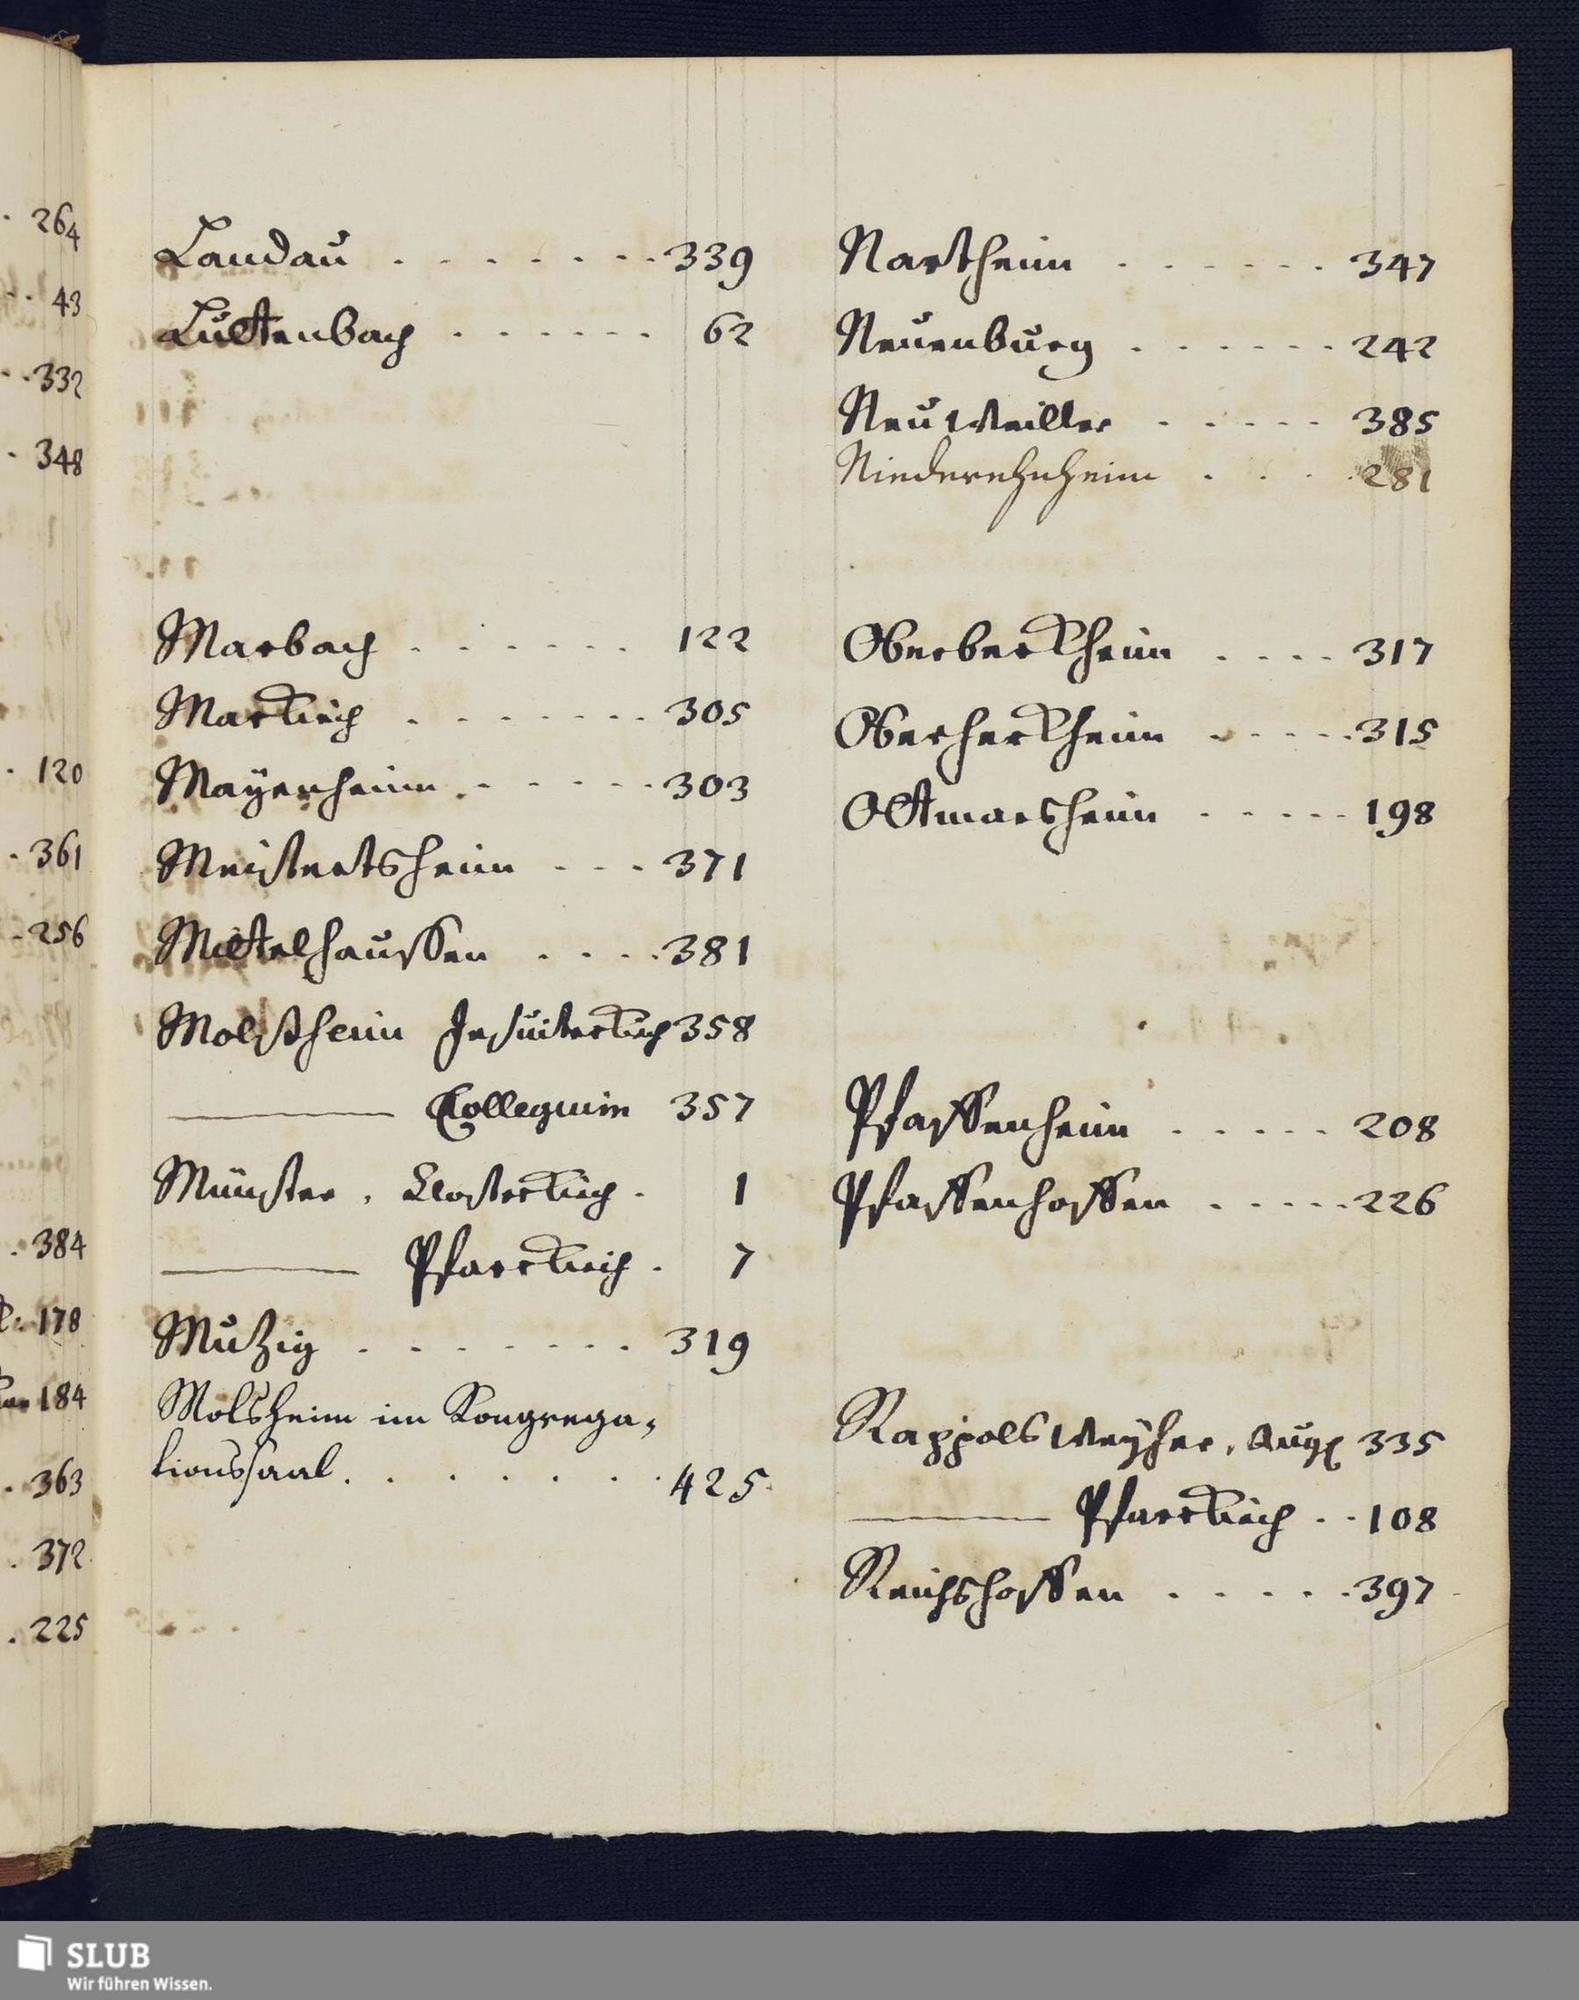 264
43
332
348
120
361
256
384
178
184
363
372
225
Landau . . . . . . . 339
Luttenbach . . . . . . 62
Marbach . . . . . . 122
Markirch . . . . . . . 305
Mayenheim . . . . . . 303
Meistertsheim . . . 371
Mittelhaussen . . . . 381
Molßheim Jesuiterkirch 358
Collegium 357
Münster, Closterkirch . 1
Pfarrkirch . 7
Mutzig . . . . . . . 319
Molsheim im Kongrega-
tionssaal . . . . . . . 425.
Nartheim . . . . . . 347
Neuenburg . . . . . . 242
Neuweiller . . . . . 385
Niederehnheim . . . . 281
Oberberkheim . . . . 317
Oberherkheim . . . . . 315
Ottmarsheim . . . . . 198
Pfaffenheim . . . . . 208
Pfaffenhoffen . . . . . 226
Rappolsweyher, Aug 335
Pfarrkirch . . 108
Reichshoffen . . . . . 397
SLUB
Wir führen Wissen.